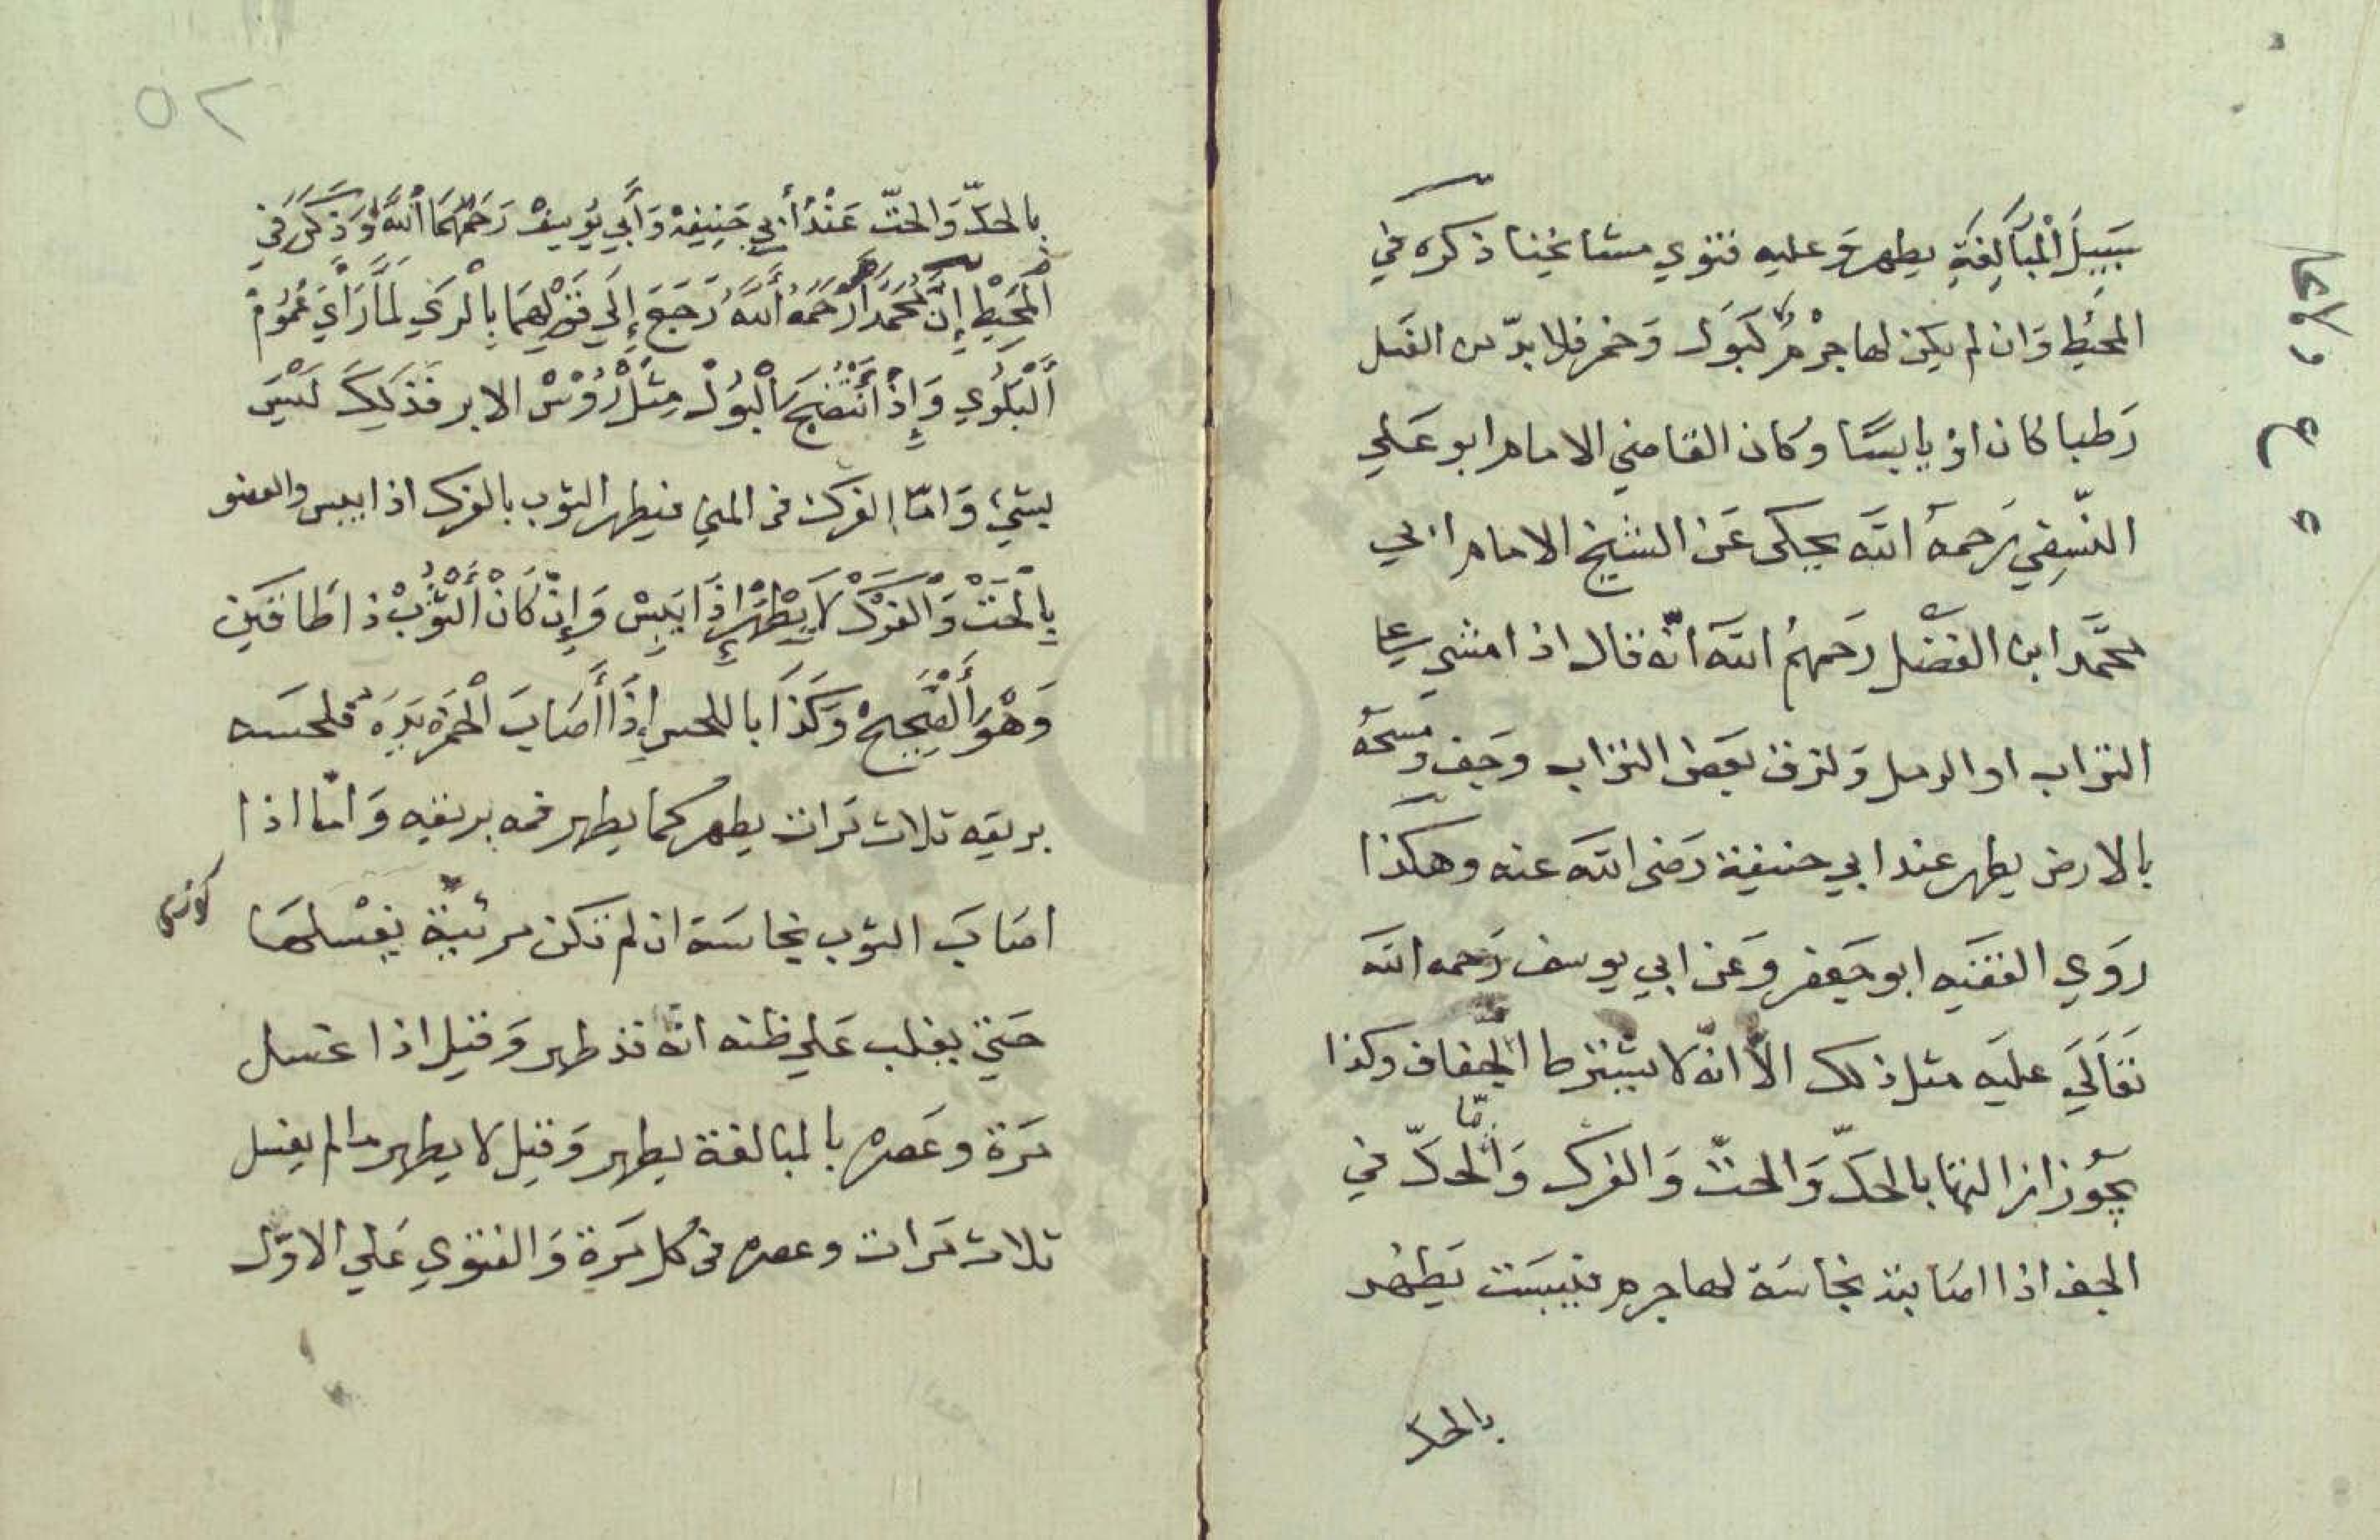 سَبِيلِ الْمُبَالَغَةِ يطهر وَعليه فتوي مشايخنا ذكره في
المحيْط وَان لم يكن لها جرْمٌ كَبَوَل وَخمر فلا بدّ من الغَسل
رَطبا كان اوْ يابسًا وكان القاضي الامام ابو عَلي
النّسِفي رَحمهُ اللّه يحكى عَن الشيخ الامام ابي
محَمَّد ابن الفضْل رَحمهمُ اللّه انّه قال اذا مشي علي
التراب او الرمل وَلزق بَعض التراب وَجف وَمسحَهُ
بالارض يطهر عند ابي حنيفة رَضى اللّه عنه وهكذا
روَي الفقيَه ابو جَعفر وَعَن ابي يوسف رَحمه اللّه
تعَالَيَ عليَه مثل ذلك الاّ انّه لا يشترط الجفاف وكذا
يجَوُز ازالتها بالحكّ وَالحتّ وَالفرك وَامّا الحكّ في
الخف اذا اصَابته نجاسَة لها جرم فيبسَت يَطهُر
بالحك
٥٢
بالحكّ وَالحتّ عَنْدَ أبي حَنِيفةْ وَأَبي يُوسفْ رَحَمَهُمَا اللّهُ وَذَكَرَ في
اَلمحِيْطِ إنَّ مُحَمَدَاً رَحَمَهُ اللّهُ رَجَعَ إلَي قَوْلِهِمَا بِالْرَي لَمَّا رَأَيَ عُمُومْ
اَلْبَلْوُي وَإِذْ أَنْتَضَحَ اَلْبُولْ مِثْلْ رُؤُسْ الابر فَذَلِكَ لَيْسَ
بشيْءٍ وَامّا الفركُ في المني فيطهر الثوب بالفرك اذا يبس والعضو
بِالْحَتْ وَالْفَرْكْ لاَ يَطْهَرْ إِذَا يَبِسْ وَإِنْ كَانْ أَلْثَوُبْ ذا طَاقَين
وَهْوَ أَلْصَحِيحْ وَكَذَا باللحس إذَا أَصَابَ الْخمَرَ يَدِهَ فلحسَه
بريقه ثلاث مَرات يطهر كما يطهر فمه بريقه وَامّا اذا
اصَابَ الثوب نجاسَة ان لم تكن مرئيّة يغْسلهَا
حَتي يغلب عَلي ظنه انّه قد طهر وَقيل اذا غسل
مَرَة وعَصره بالمبالغة يطهر وَقيل لا يطهر ما لم يغسل
ثلاث مَرات وعصره في كل مَرَة وَالفتوي عَلي الاوّل